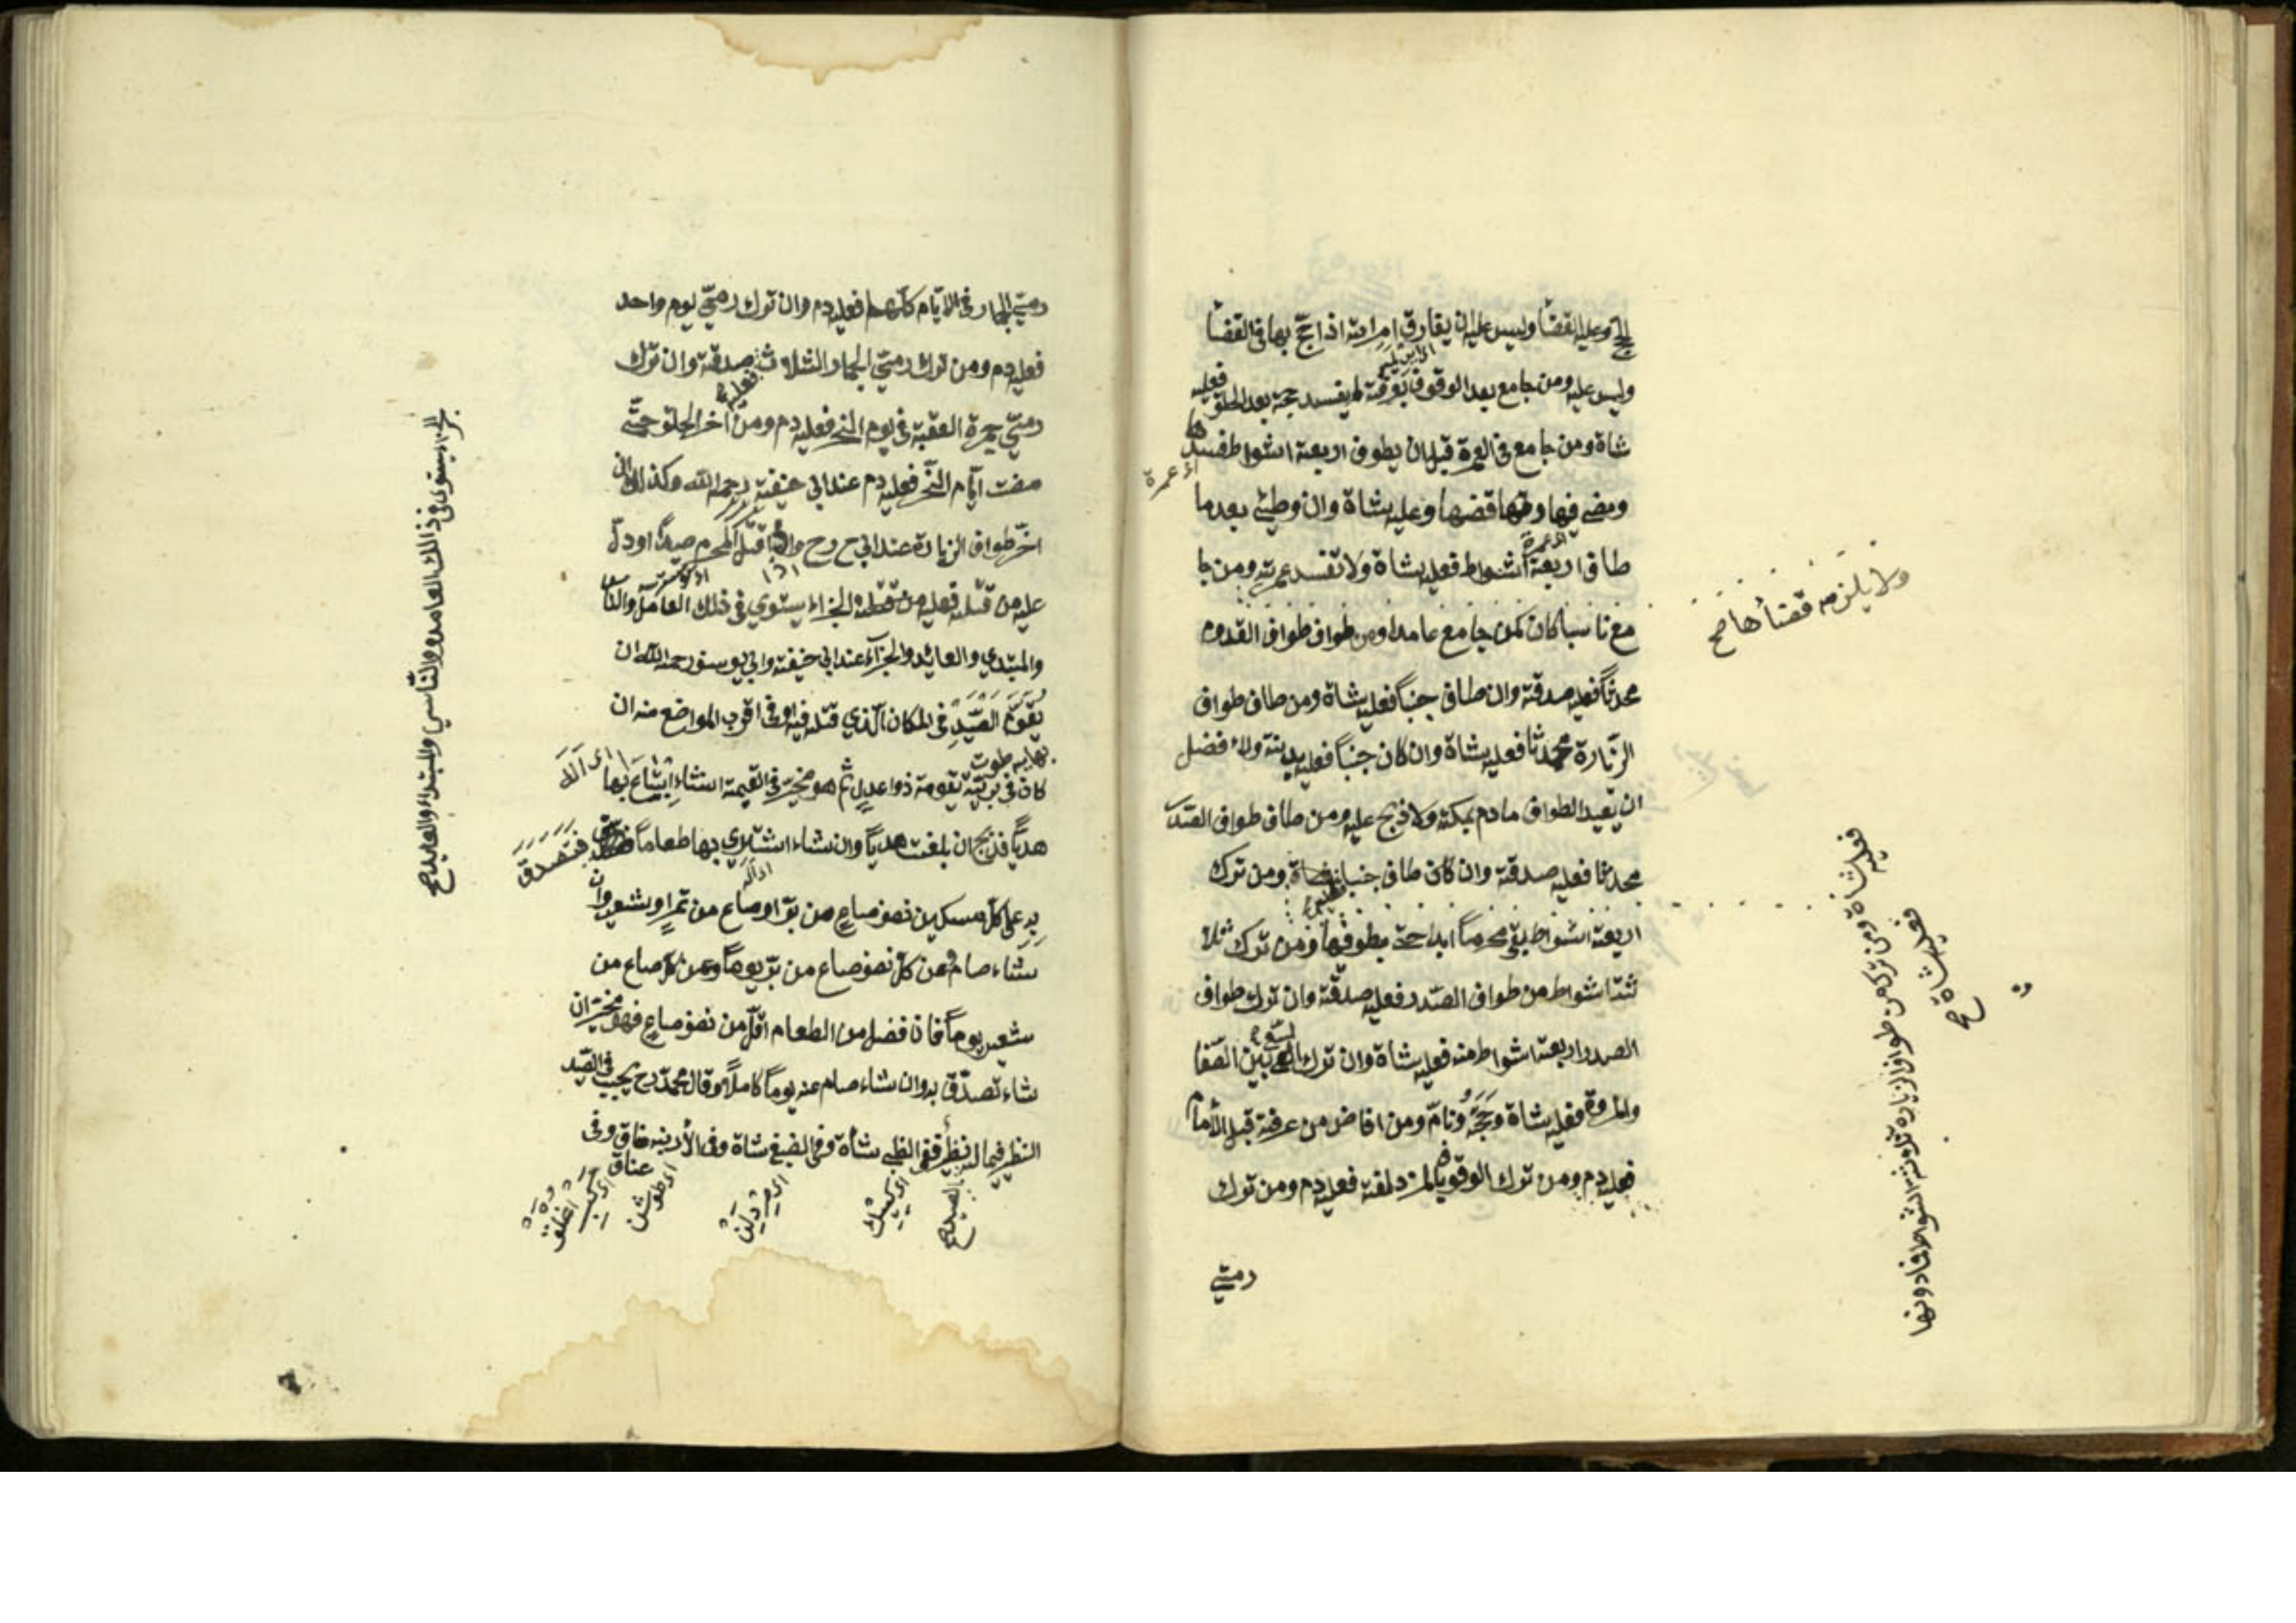 الحج وعليه القضأ وليس عليه ان يفارق امراته اذا حج بها في القضأ
وليس عليه ومن جامع بعد الوقوف بعرفة لم يفسد حجه بعد الحلق فعليه
شاة ومن جامع في العمرة قبل ان يطوف اربعة اشواط فسدها
اى عمرة
ومضى فيها وقضها وعليه شاة وان وطئ بعد ما
طاف اربعة اشواط فعليه شاة ولا تفسد عمرته ومن جا
ولا يلزمه قضأها صح
مع ناسيا كان كمن جامع عامدا ومن طواف طواف القدوم
محدثاً فعليه صدقة وان طاف جنباً فعليه شاة ومن طاف طواف
الزيارة محمدثا فعليه شاة وان كان جنباً فعليه بدنة ولا فضل
ان يعيد الطواف مادم بمكة ولا ذبح عليه ومن طاف طواف الصد
محدثا فعليه صدقة وان كان طاف جنبا شاة ومن ترك
اربعة اشواط بقي محرماً ابدا حتى يطوفها ومن ترك ثلا
ثة اشواط من طواف الصدر فعليه صدقة وان ترك طواف
الصدر او اربعة اشواط منه فعليه شاة وان ترك السعي بين الصفا
والمروة فعليه شاة وحجه تام ومن افاض من عرفة قبل الأمام
فعليه دم ومن ترك الوقوف بالمزدلفة فعليه دم ومن ترك
رمي
فعليه شاة ومن ترك من طواف الزيارة ثلاثة اشواط فما دونها
فعليه شاة صح
رمي الجمار في الايام كلها فعليه دم وان ترك رمي يوم واحد
فعليه دم ومن ترك رمي الجمار الثلاث فعليه صدقة وان ترك
رمي جمرة العقبة في يوم النحر فعليه دم ومن اخر الحلق حتى
مضت ايام النحر فعليه دم عند ابي حنيفة رحمه الله وكذلك ان
اخر طواف الزيارة عند ابي ح رح واذا قتل المحرم صيداً او دل
عليه من قتله فعليه الجزاء يستوي في ذلك العامد والناسي
والمبتدي والعائد والجزآء عند ابي حنيفة وابي يوسف رحمه الله ان
يقوم الصيد في المكان الذي قتله فيه او في اقرب المواضع منه ان
كان في برية يقومه ذوا عدل ثم هو مخير في القيمة ان شاء ابتاع بها
هدياً فذبح ان بلغت هدياً وان شاء اشتري بها طعاماً فتصدق
به على كل مسكين نصف صاع من بر او صاع من تمر او شعير وان
شاء صام عن كل نصف صاع من بر يوماً وعن كل صاع من
شعير يوماً فان فضل من الطعام اقل من نصف صاع فهو مخير ان
شاء تصدق به وان شاء صام عنه يوماً كاملاً وقال محمد رح يجب في الصيد
النظير فيما له نظير ففي الظبي شاة وفي الضبع شاة وفي الأرنب عناق وفي
عناق
الجزاء يستوي في ذالك العامد والناسي والمبتداء والعايد صح